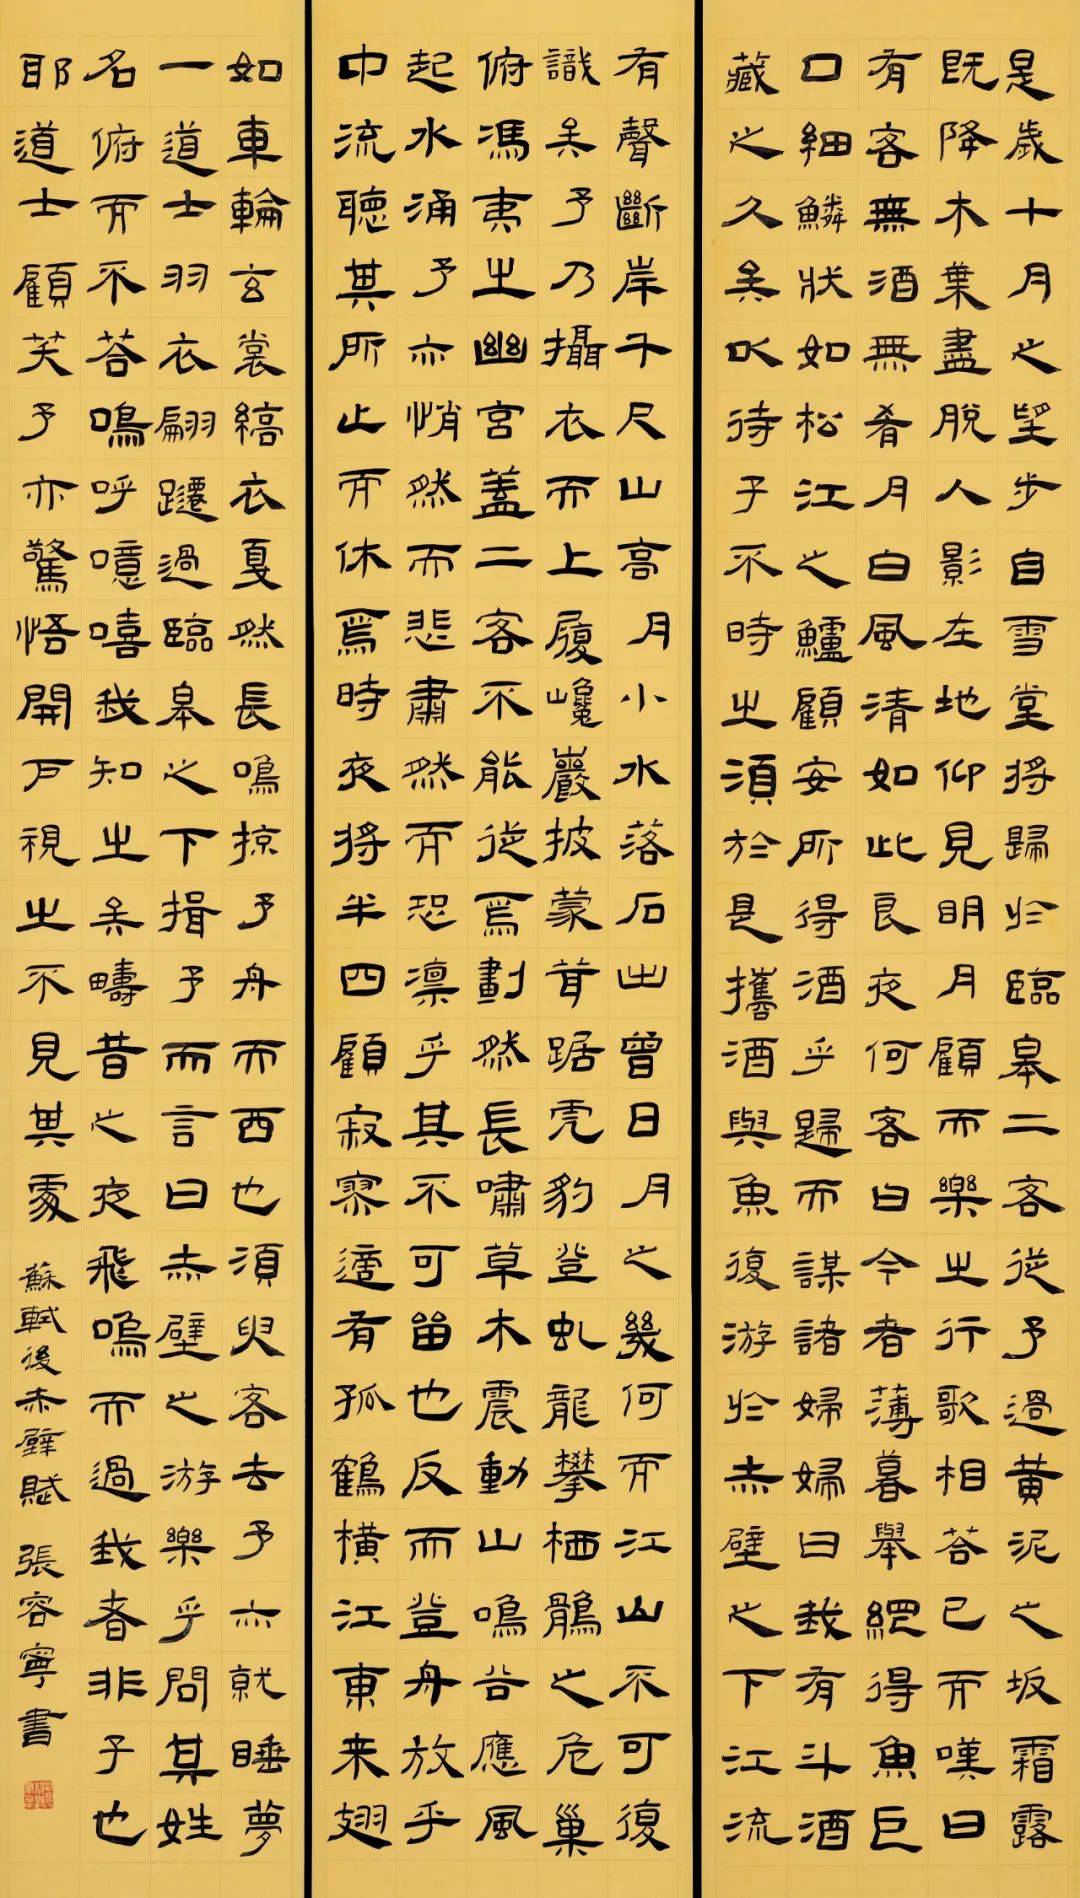 是歲十月之望步自雪堂將歸於臨皋二客從予過黃泥之坂霜露
既降木葉盡脫人影在地仰見明月顧而樂之行歌相荅已而嘆曰
有客無酒無肴月白風清如此良夜何客曰今者薄暮舉網得魚巨
口細鱗狀如松江之鱸顧安所得酒乎歸而謀諸婦婦曰我有斗酒
藏之久矣以待子不時之須於是攜酒與魚復游於赤壁之下江流
有聲斷岸千尺山高月小水落石出曾日月之幾何而江山不可復
識矣予乃攝衣而上履巉巖披蒙茸踞虎豹登虬龍攀栖鶻之危巢
俯馮夷之幽宮盖二客不能從焉劃然長嘯草木震動山鳴谷應風
起水涌予亦悄然而悲肅然而恐凜乎其不可留也反而登舟放乎
中流聽其所止而休焉時夜將半四顧寂寥適有孤鶴橫江東来翅
如車輪玄裳縞衣戛然長鳴掠予舟而西也須臾客去予亦就睡夢
一道士羽衣翩躚過臨皋之下揖予而言曰赤壁之游樂乎問其姓
名俯而不荅鳴呼噫嘻我知之矣疇昔之夜飛鳴而過我者非子也
耶道士顧笑予亦驚悟開戶視之不見其處 蘇軾後赤壁賦 張容寧書